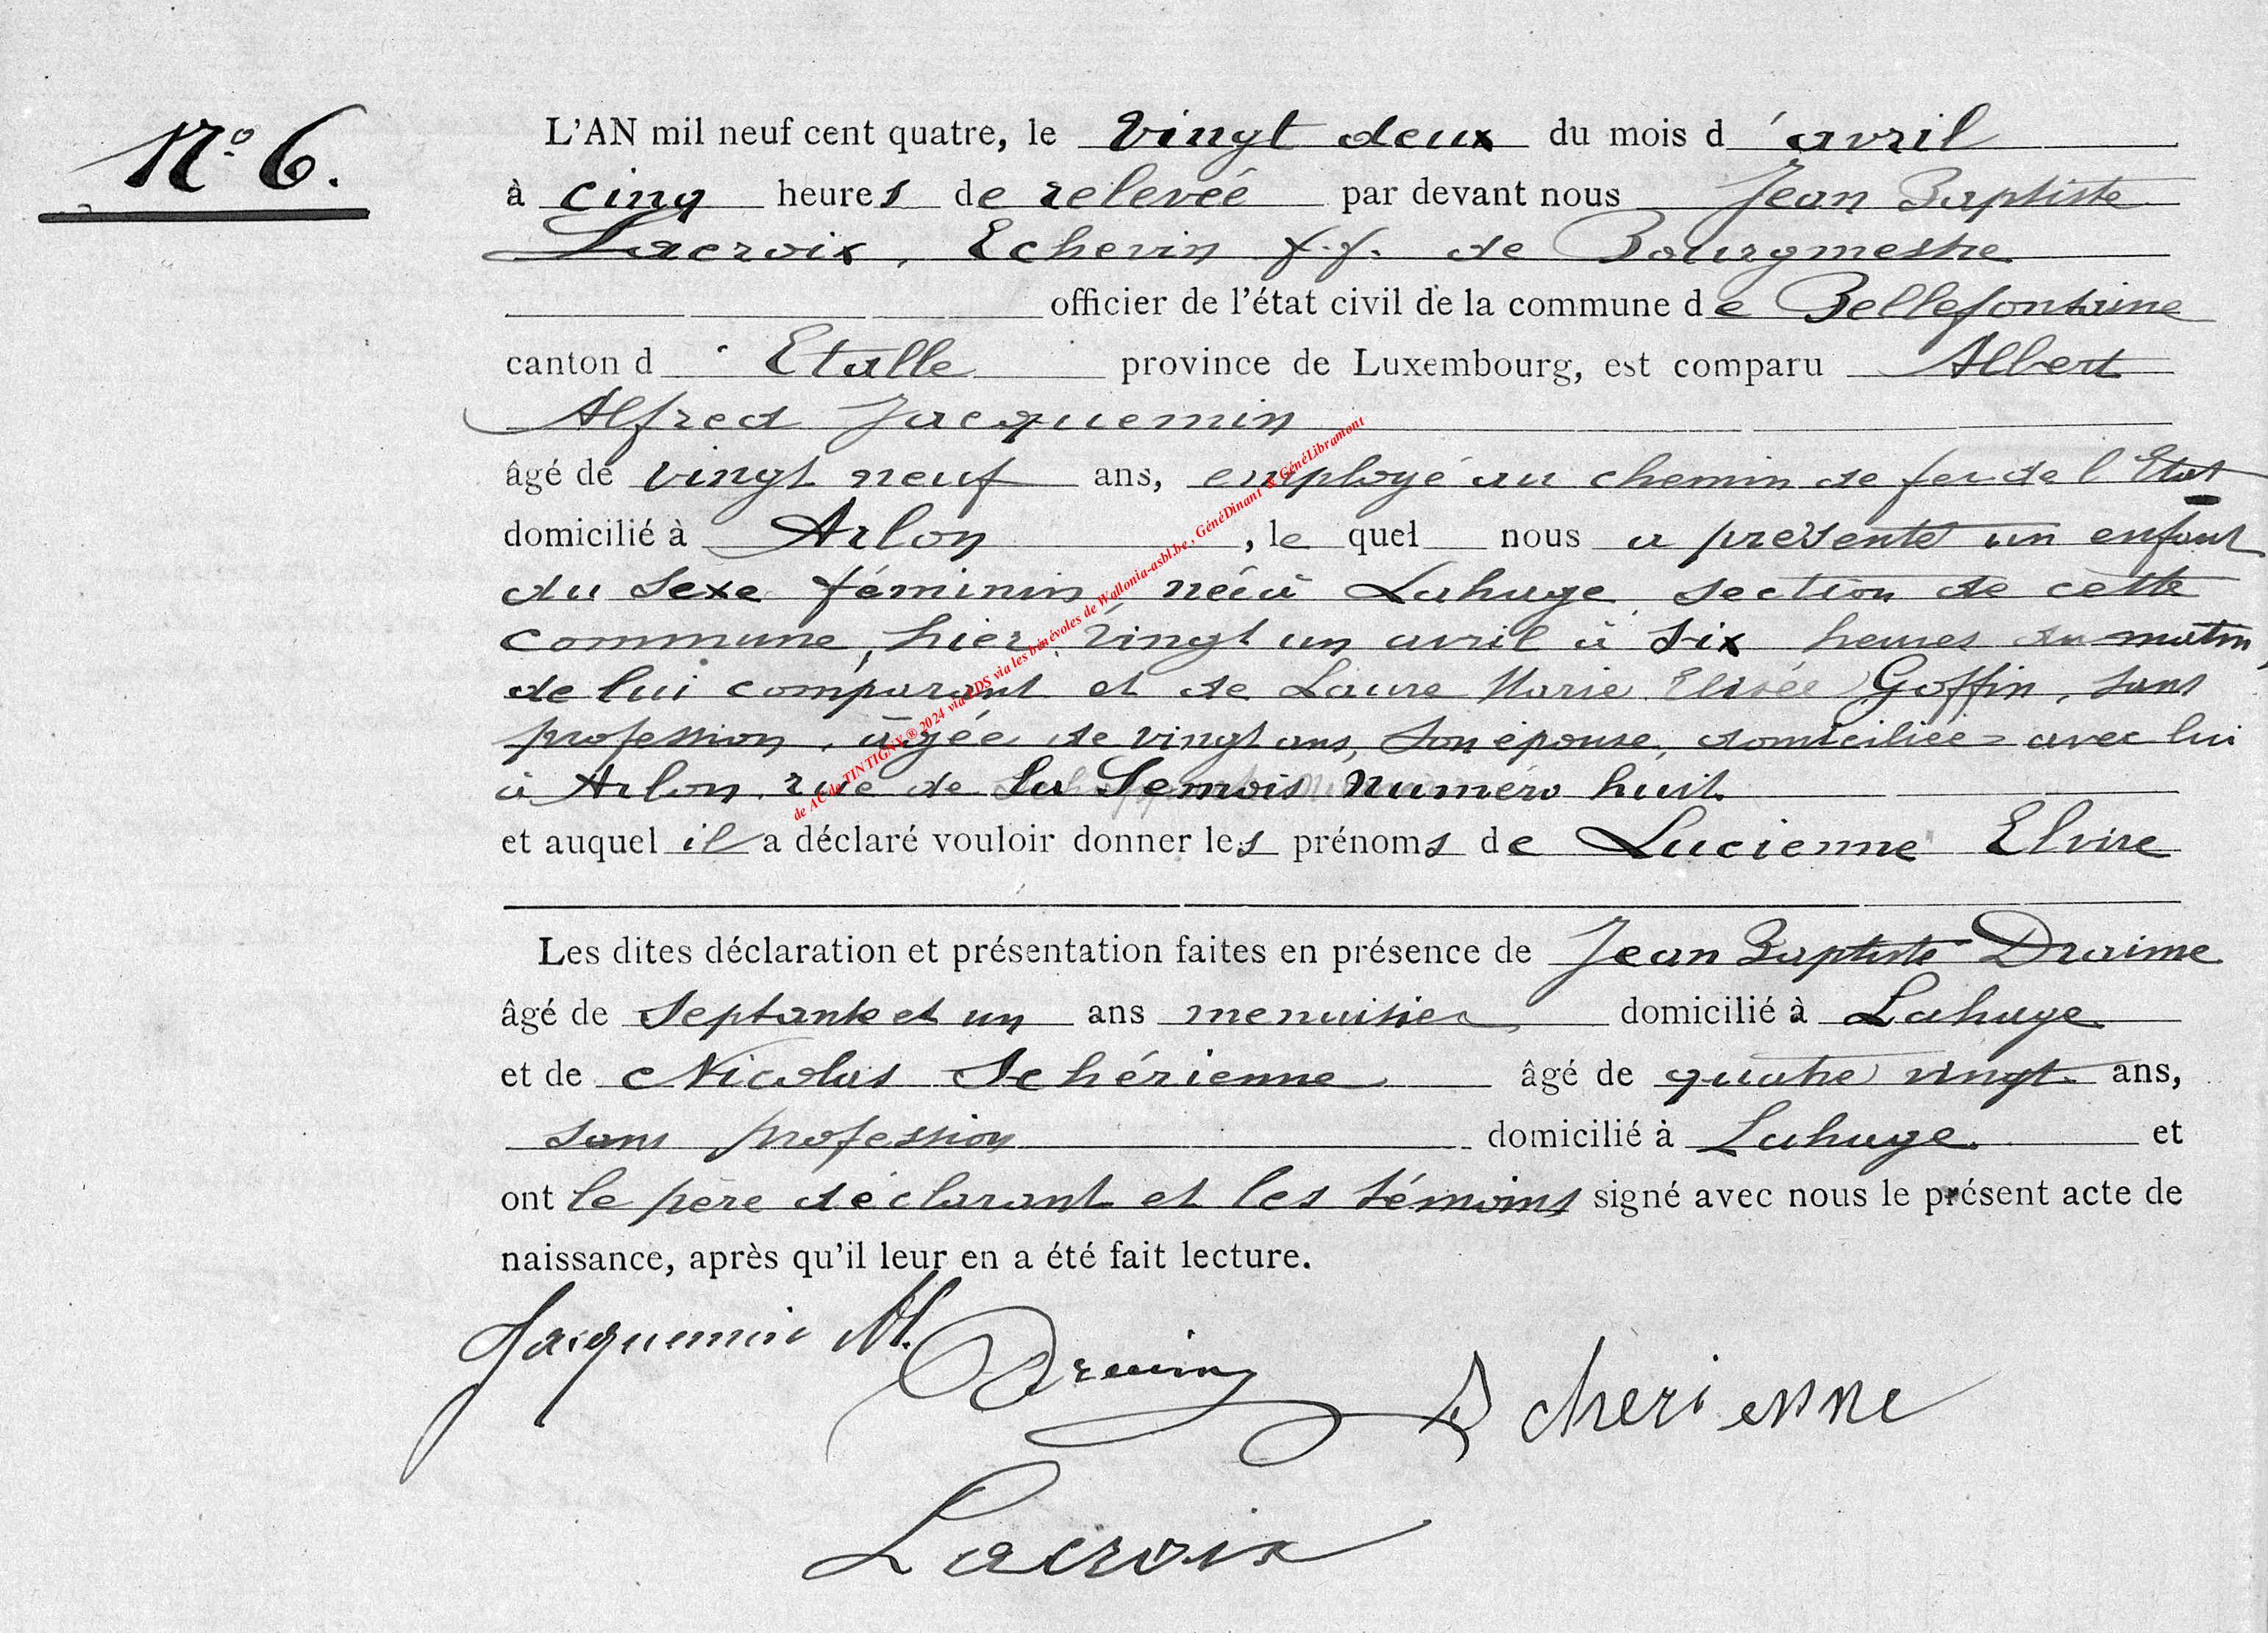 N° 6.
L'AN mil neuf cent quatre, le vingt deux du mois d'avril
à cinq heures de relevée par devant nous Jean Baptiste
Lacroix, Echevin f.f. de Bourgmestre
officier de l'état civil de la commune de Bellefontaine
canton d'Etalle province de Luxembourg, est comparu Albert
Alfred Jacquemin
âgé de vingt neuf ans, employé au chemin de fer de l'Etat
domicilié à Arlon, le quel nous a présenté un enfant
du sexe féminin, née à Lahage, section de cette
commune, hier, vingt un avril à six heures du matin,
de lui comparant et de Laure Marie Elisée Goffin, sans
profession, âgée de vingt ans, son épouse, domiciliée avec lui
à Arlon, rue de la Semois numéro huit.
et auquel il a déclaré vouloir donner les prénoms de Lucienne Elvire
Les dites déclaration et présentation faites en présence de Jean Baptiste Draime
âgé de septante et un ans menuisier, domicilié à Lahage
et de Nicolas Schérienne âgé de quatre vingt ans,
sans profession domicilié à Lahage. et
ont le père déclarant et les témoins signé avec nous le présent acte de
naissance, après qu'il leur en a été fait lecture.
Jacquemin Al. Draime
Scherienne
Lacroix
de AC de TINTIGNY ® 2024 via FDS via les bénévoles de Wallonia-asbl.be, GénéDinant & GénéLibramont